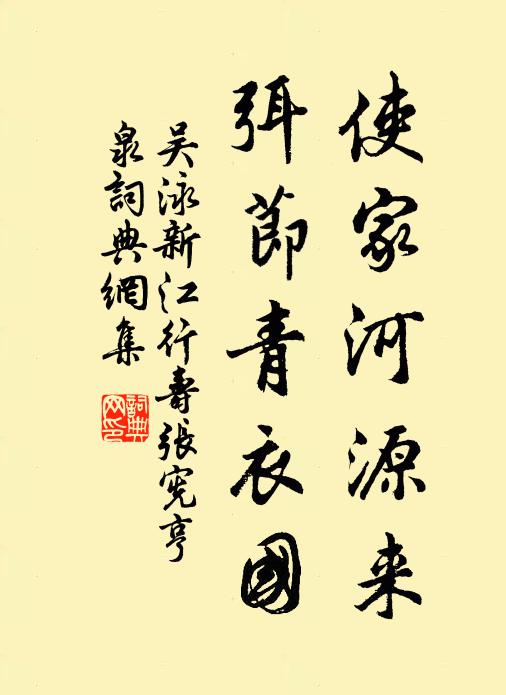 使家河源来
弭節青衣國
吴泳新江行壽張宪亨
泉詞典網集
詞典网印